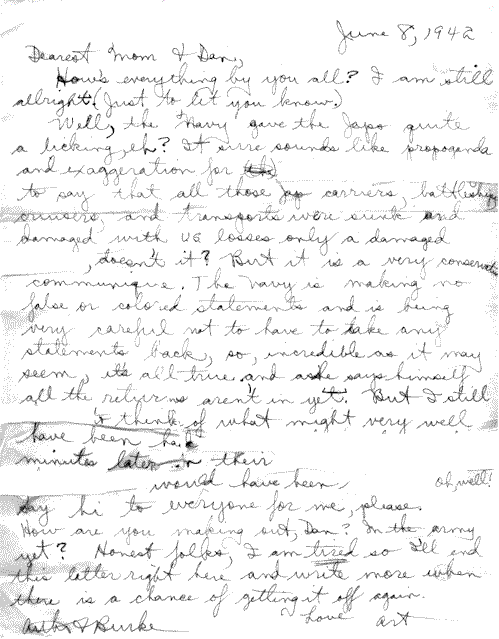 June 8, 1942
Dearest Mom & Dan,
How's everything by you all? I am still
allright. (Just to let you know.)
Well, the Navy gave the Japs quite
a licking, eh? It sure sounds like propoganda
and exaggeration for
to say that all those Jap carriers, battleships
cruisers, and transports were sunk and
damaged with US losses only a damaged
, doesn't it? But it is a very conservative
communique. The Navy is making no
false or colored statements and is being
very careful not to have to take any
statements back, so, incredible as it may
seem, it's all true and as he says himself
all the returns aren't in yet. But I still
think of what might very well
have been ha
minutes later in their
would have been. Oh, well!
Say hi to everyone for me, please.
How are you making out, Dan? In the army
yet? Honest folks, I am tired so I'll end
this letter right here and write more when
there is a chance of getting it off again.
Love Art
Burke